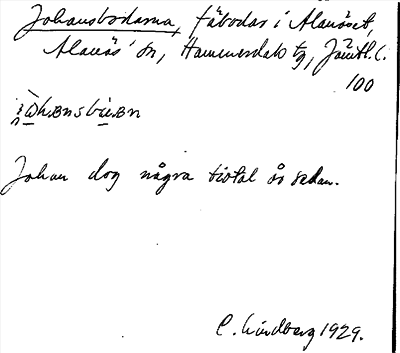 Johansbodarna, fäbodar i Alanäset,
Alanäs' sn, Hammerdals tg, Jämtl. C.
100
Johan dog några tiotal år sedan.
C. Lindberg 1929.